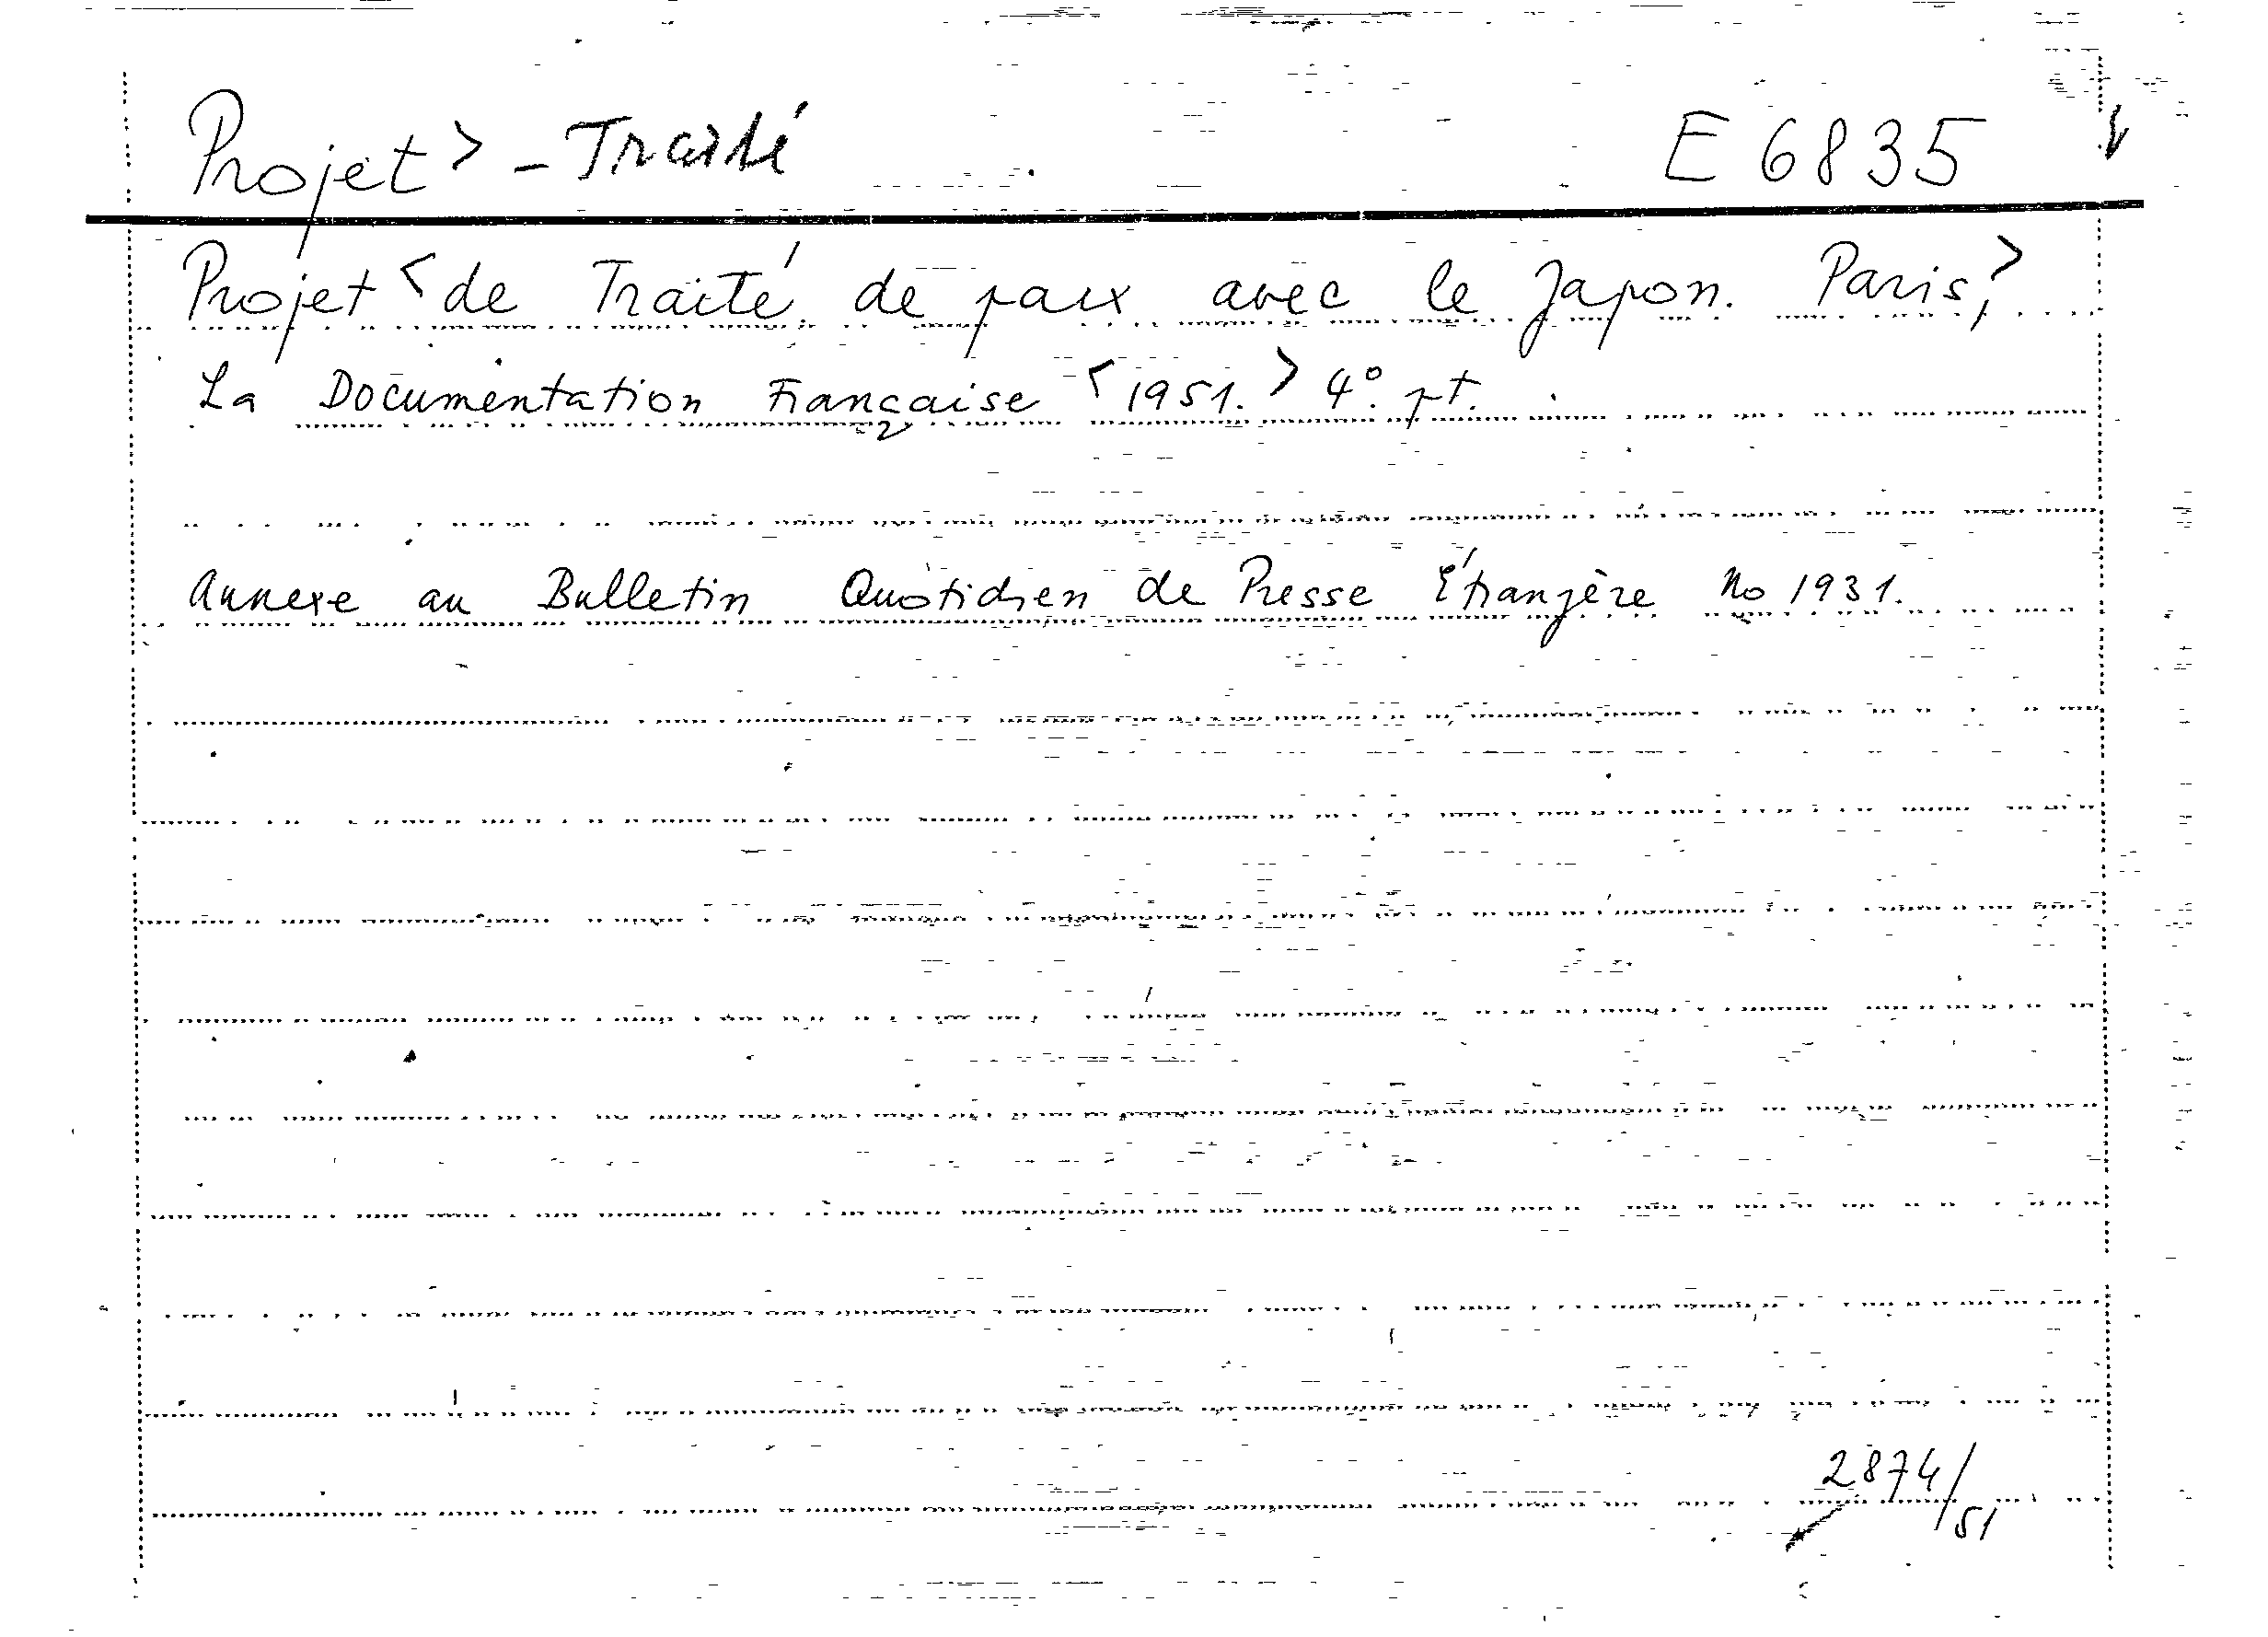 Projet> - Traité E 6835
Projet <de Traité de paix avec le Japon. Paris,>
La Documentation Française <1951.> 4°. pt.
Annexe au Bulletin Quotidien de Presse Étrangère No 1931.
2874/51